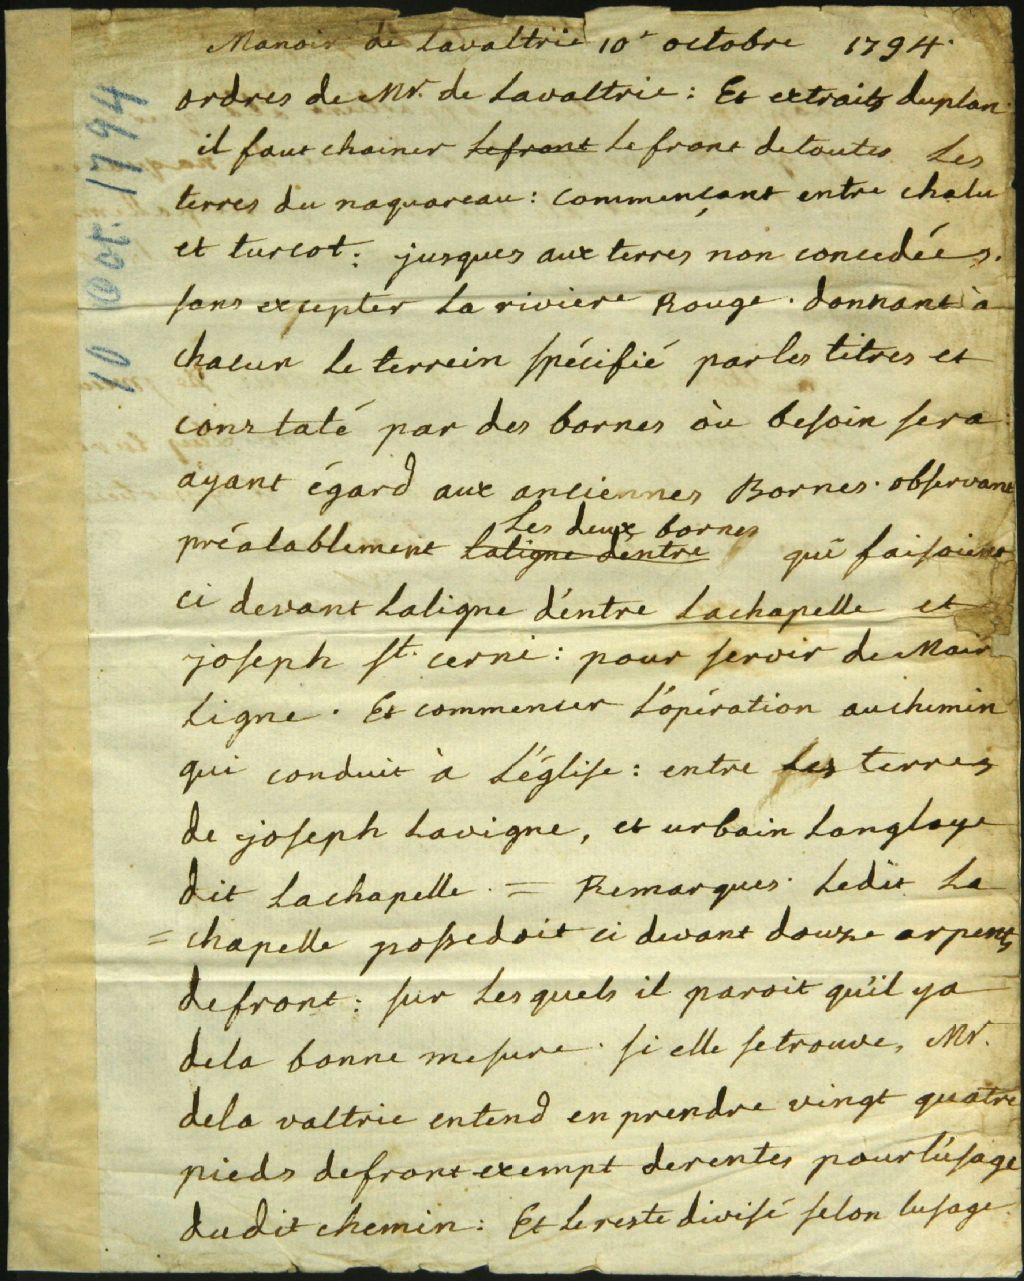 Manoir de Lavaltrie 10e octobre 1794.
ordres de Mr. de Lavaltrie : Et extraits duplan.
il faut chainer Lefront Le front detoutes Les
terres du naquareau : commençant entre chalu
et turcot : jusques aux terres non concedées.
sans excepter La riviere Rouge. donnant à
chacun Le terrein spécifié par les titres et
constaté par des bornes òu besoin sera
ayant égard aux anciennes Bornes. observant
Les deux bornes
préalablement Laligne dentre qui faisoient
ci devant Laligne d'entre Lachapelle et
joseph st. cerni : pour servir de Mair
Ligne. Et commencer L'opération auchemin
qui conduit à L'église : entre Les terres
de joseph Lavigne, et urbain Langloye
dit Lachapelle. = Remarques. Ledit La
= chapelle possedoit ci devant douze arpents
defront : sur Lesquels il paroit qu'il ya
dela bonne mesure. si elle setrouve, Mr.
dela valtrie entend en prendre vingt quatre
pieds defront exempt derentes pour l'usage
dudit chemin : Et Lereste divisé selon lusage.
10 Oct. 1794